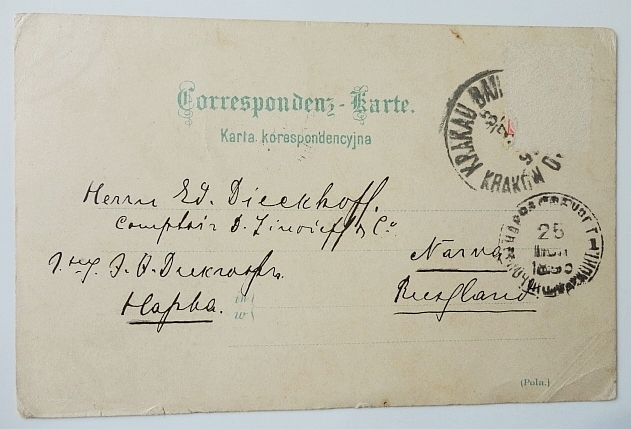 Correspondenz-Karte.
Karta korespondencyjna
KRAKAU
KRAKÓW
Herrn Ed. Dieckhoff.
Comptoir D. Zinovieff & Co
Narva
25
Нарва.
Russland
in
w
(Poln.)